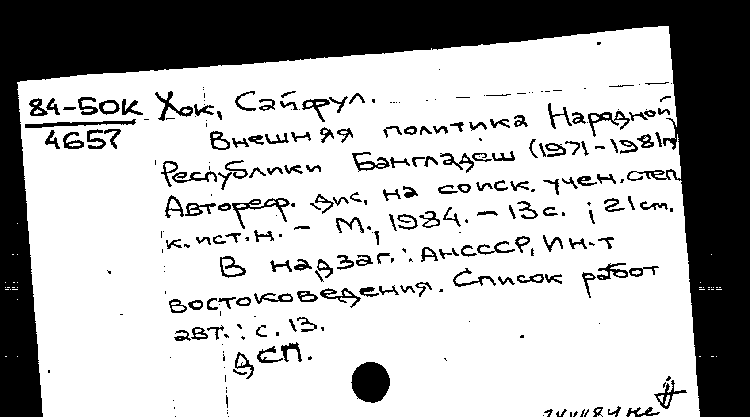 84-5ОК Хок, Сайфул.
4657
Внешняя политика Народной
Республики Бангладеш (1971-1981гг)
Автореф. дис. на соиск. учен. степ.
к. ист. н. - М., 1984. - 13 с. ; 21 см.
В надзаг.: АН СССР, Ин-т
востоковедения. Список работ
авт.: с. 13.
ДСП.